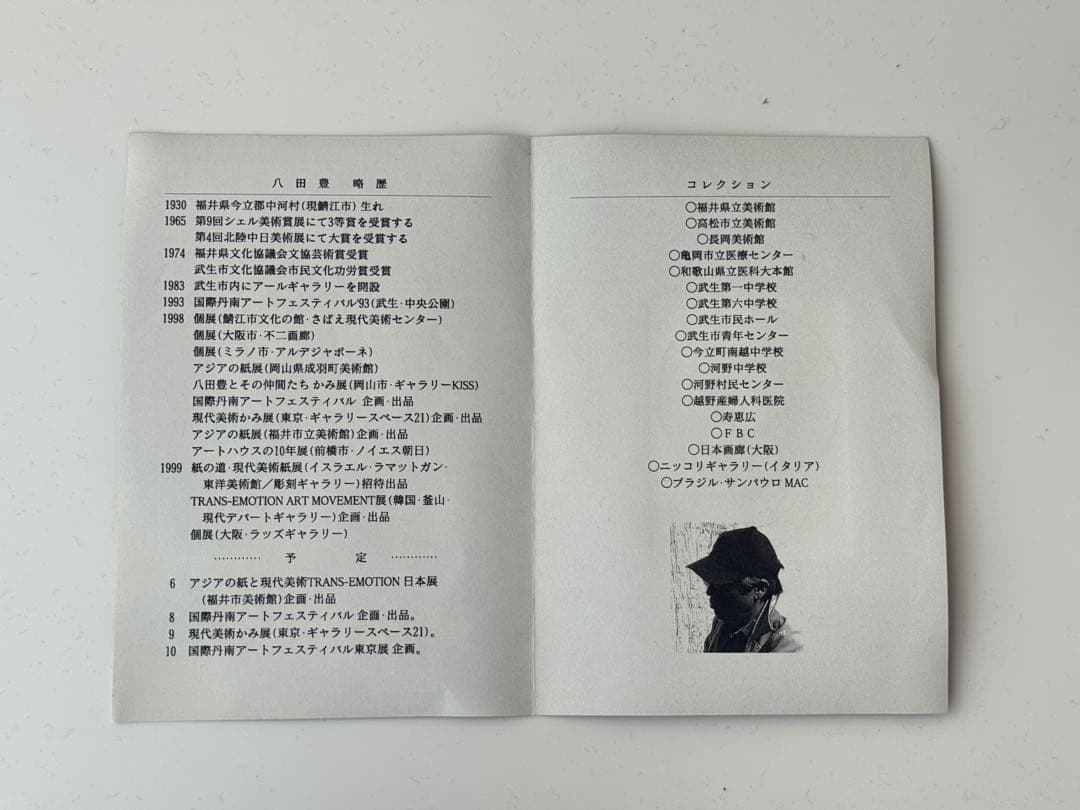 八田豊 略歴
1930 福井県今立郡中河村(現鯖江市)生れ
1965 第9回シェル美術賞展にて3等賞を受賞する
第4回北陸中日美術展にて大賞を受賞する
1974 福井県文化協議会文協芸術賞受賞
武生市文化協議会市民文化功労賞受賞
1983 武生市内にアールギャラリーを開設
1993 国際丹南アートフェスティバル'93(武生・中央公園)
1998 個展(鯖江市文化の館・さばえ現代美術センター)
個展(大阪市・不二画廊)
個展(ミラノ市・アルデジャポーネ)
アジアの紙展(岡山県成羽町美術館)
八田豊とその仲間たち かみ展(岡山市・ギャラリーKISS)
国際丹南アートフェスティバル 企画・出品
現代美術かみ展(東京・ギャラリースペース21)企画・出品
アジアの紙展(福井市立美術館)企画・出品
アートハウスの10年展(前橋市・ノイエス朝日)
1999 紙の道・現代美術紙展(イスラエル・ラマットガン・
東洋美術館/彫刻ギャラリー)招待出品
TRANS-EMOTION ART MOVEMENT展(韓国・釜山・
現代デパートギャラリー)企画・出品
個展(大阪・ラッズギャラリー)
………… 予 定 …………
6 アジアの紙と現代美術TRANS-EMOTION 日本展
(福井市美術館)企画・出品
8 国際丹南アートフェスティバル 企画・出品。
9 現代美術かみ展(東京・ギャラリースペース21)。
10 国際丹南アートフェスティバル東京展 企画。
コレクション
○福井県立美術館
○高松市立美術館
○長岡美術館
○亀岡市立医療センター
○和歌山県立医科大本館
○武生第一中学校
○武生第六中学校
○武生市民ホール
○武生市青年センター
○今立町南越中学校
○河野中学校
○河野村民センター
○越野産婦人科医院
○寿恵広
○FBC
○日本画廊(大阪)
○ニッコリギャラリー(イタリア)
○ブラジル・サンパウロ MAC